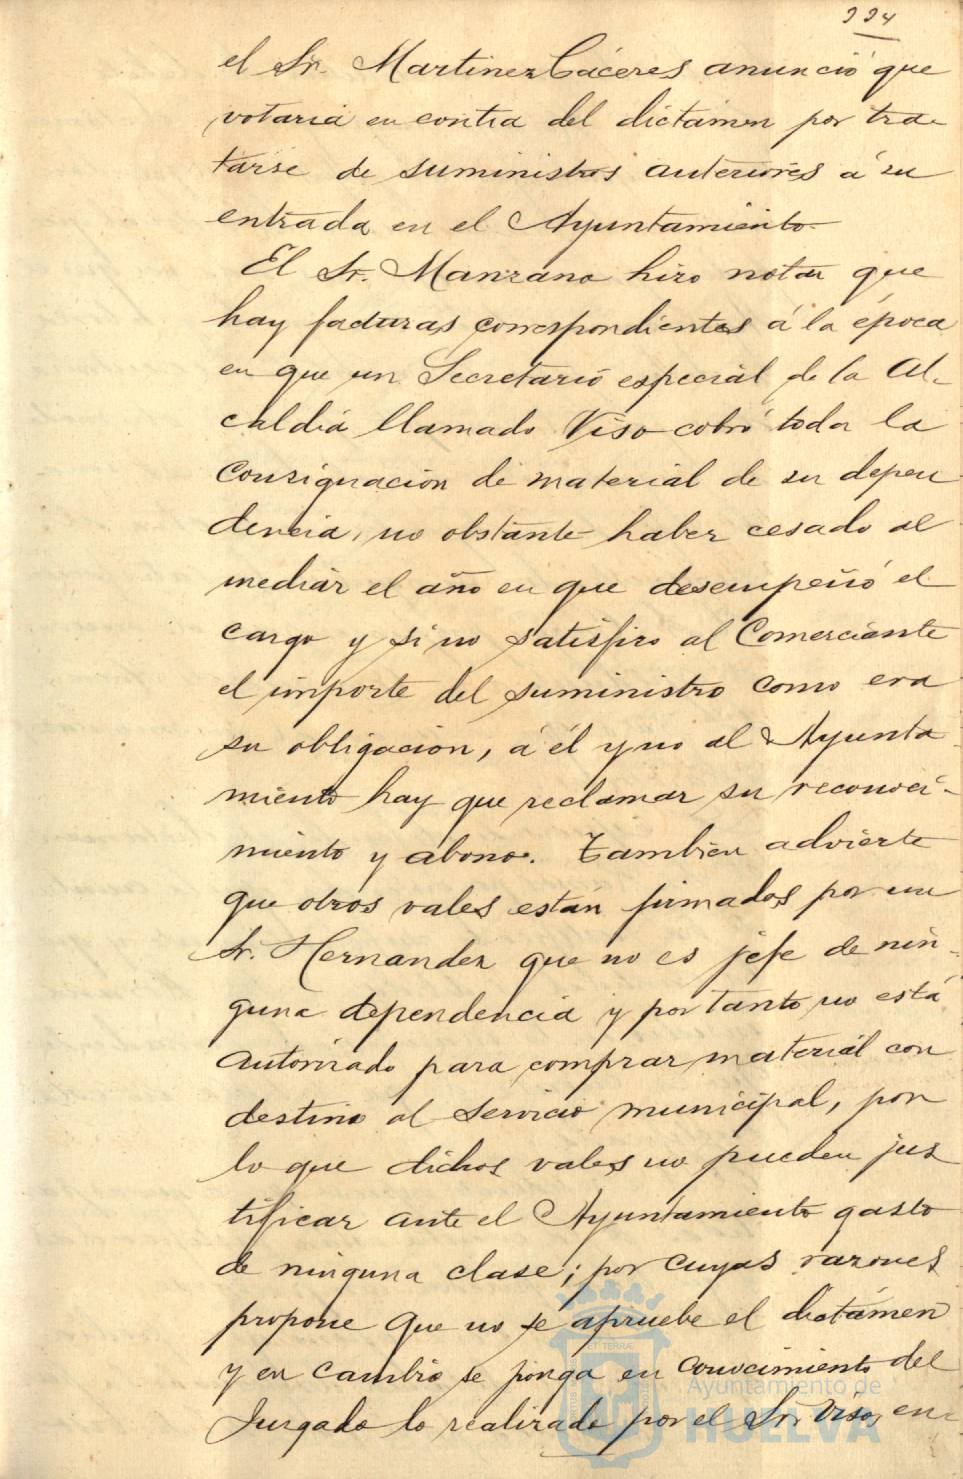 224
el Sr. Martinez Cáceres anunció que
votaria en contra del dictámen por tra-
tarse de suministros anteriores á su
entrada en el Ayuntamiento.
El Sr. Manzano hizo notar que
hay facturas correspondientes á la época
en que un Secretario especial de la Al-
caldia llamado Viso cobró toda la
consignación de material de su depen
dencia, no obstante haber cesado al
mediar el año en que desempeñó el
cargo y si no satisfizo al Comerciante
el importe del suministro como era
su obligación, á él y no al Ayunta
miento hay que reclamar su reconoci-
miento y abono. Tambien advierte
que otros vales están firmados por un
Sr. Hernandez que no es jefe de nin-
guna dependencia y por tanto no está
autorizado para comprar material con
destino al servicio municipal, por
lo que dichos vales no pueden jus
tificar ante el Ayuntamiento gasto
de ninguna clase; por cuyas razones
propone que no se apruebe el dictámen
y en cambio se ponga en conocimiento del
Juzgado lo realizado por el Sr. Viso, en-
Ayuntamiento de
HUELVA